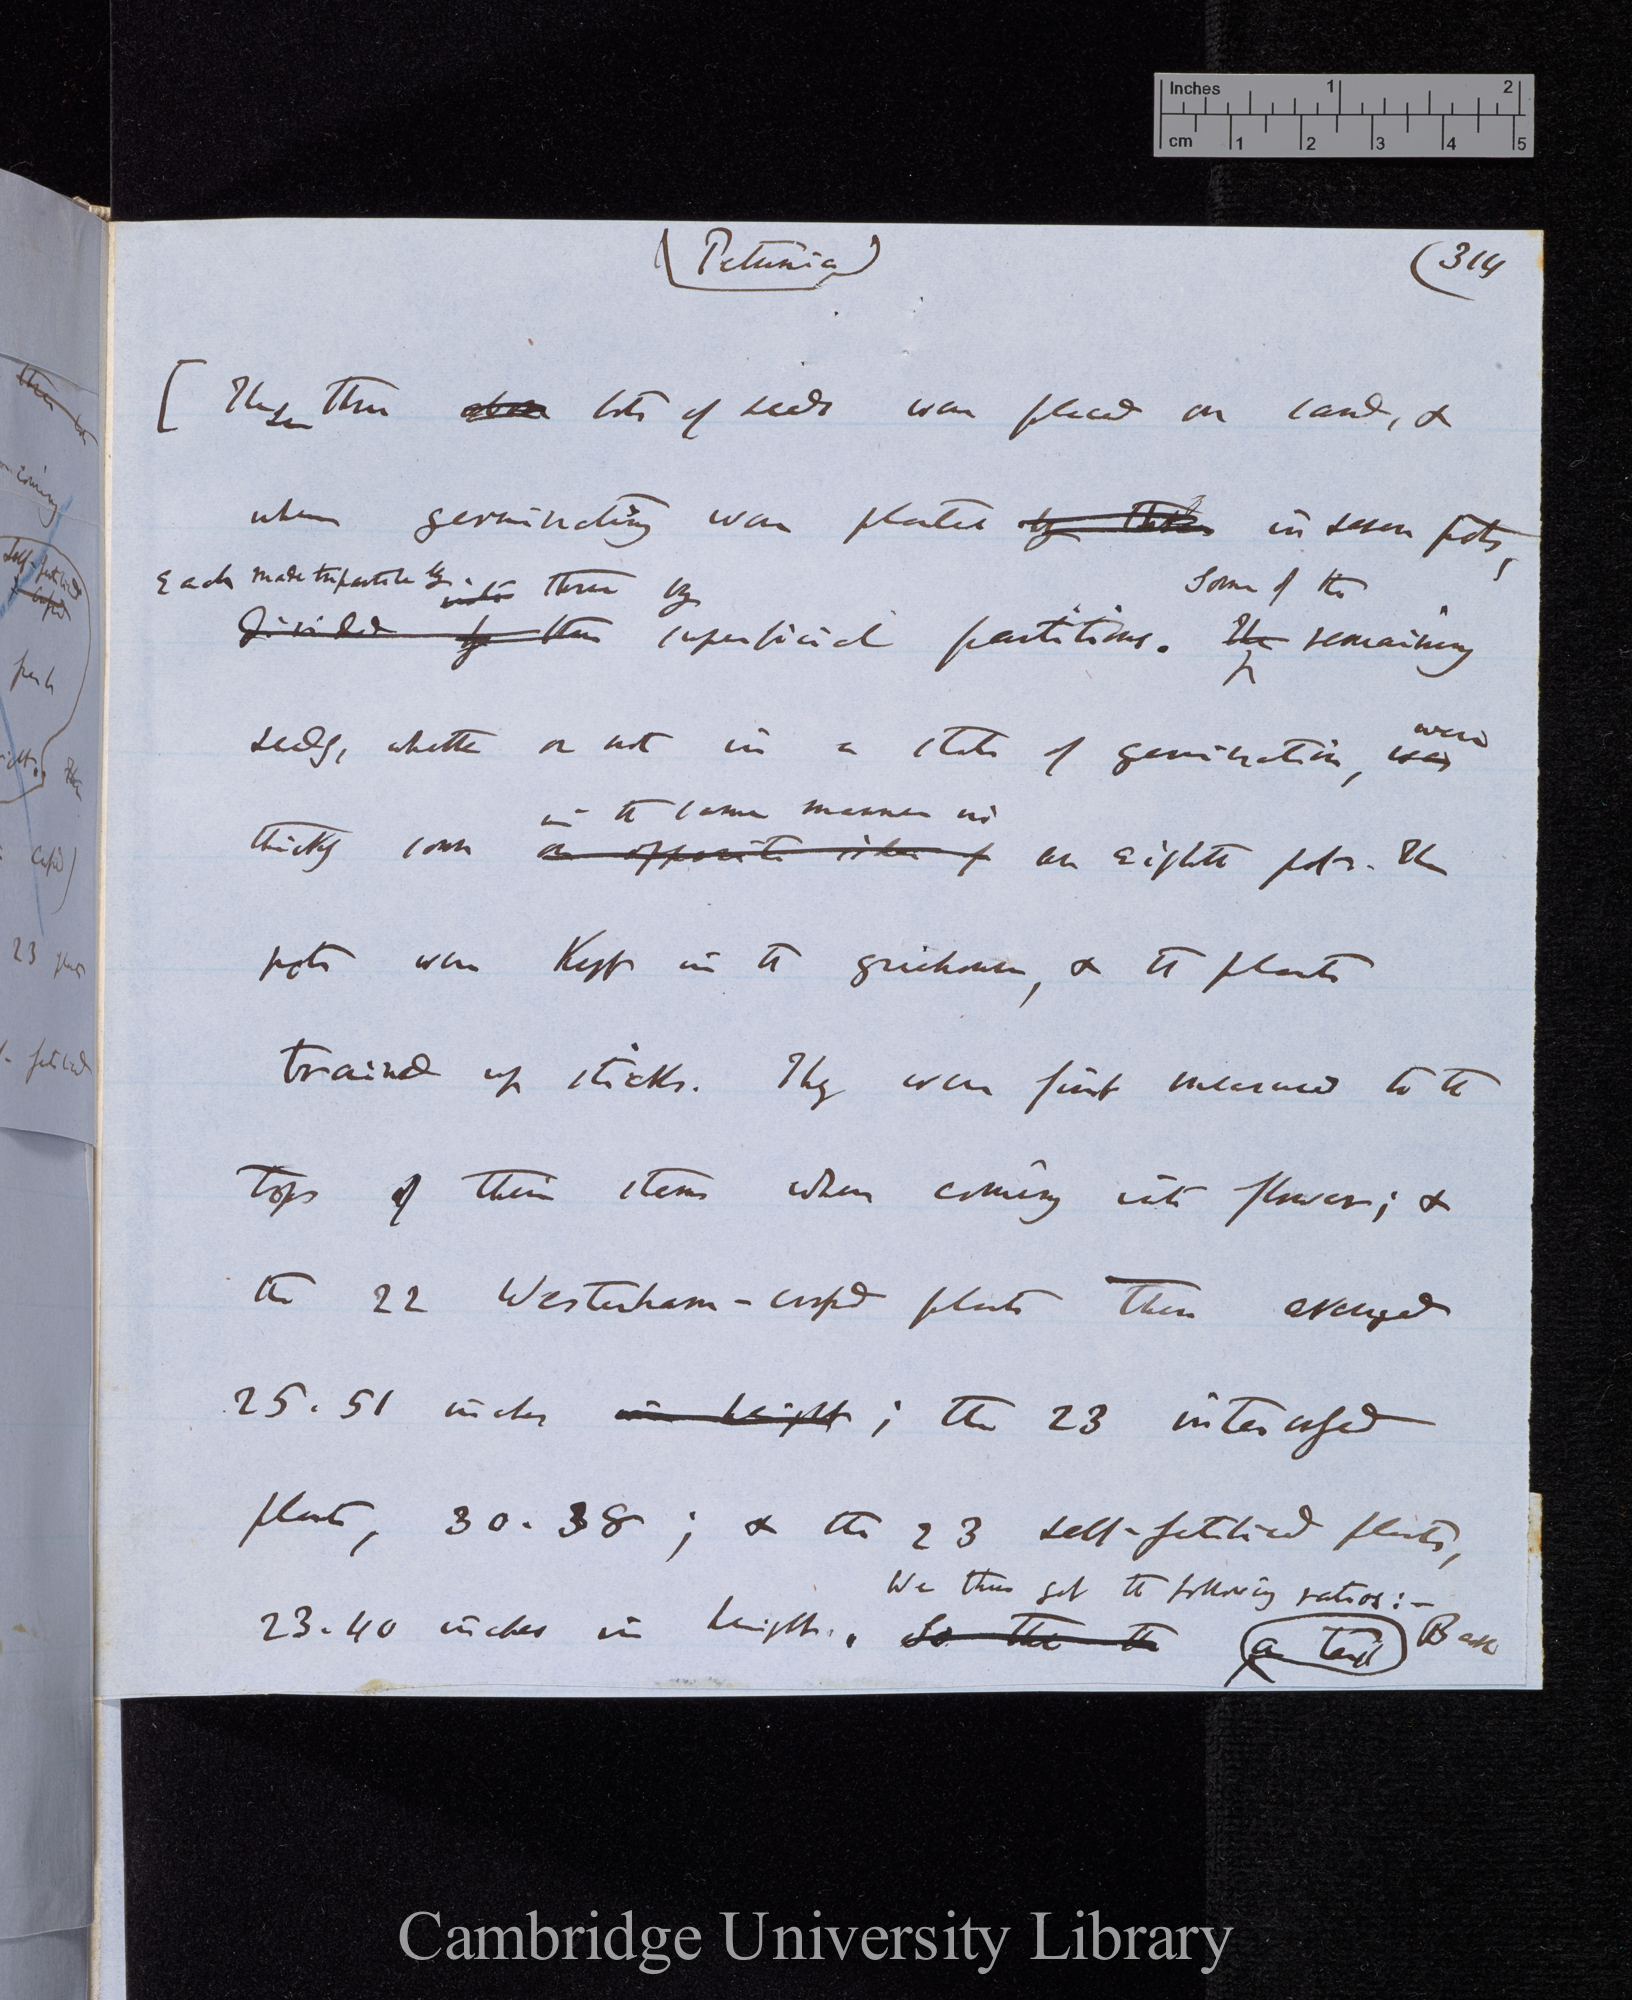 Inches 1 2
cm 1 2 3 4 5
(Petunia)
(314
[These three above lots of seeds were placed on sand, &
when germinating were planted by threes in seven pots,
Each made tripartite by into three by Some of the
divided by three superficial partitions. The remaining
seeds, whether or not in a state of germination, was were
in the same manner in
thickly sown on opposite sides of an eighth pot. The
pots were kept in the greenhouse, & the plants
trained up sticks. They were first measured to the
tops of their stems when coming into flower; &
the 22 Westerham-crossed plants then averaged
25.51 inches in height; the 23 intercrossed
plants, 30.38; & the 23 self-fertilised plants,
We thus get the following ratios:—
23.40 inches in height. So the the a Back
then
coming
self-fertilised
23 plants
fertilised
Cambridge University Library